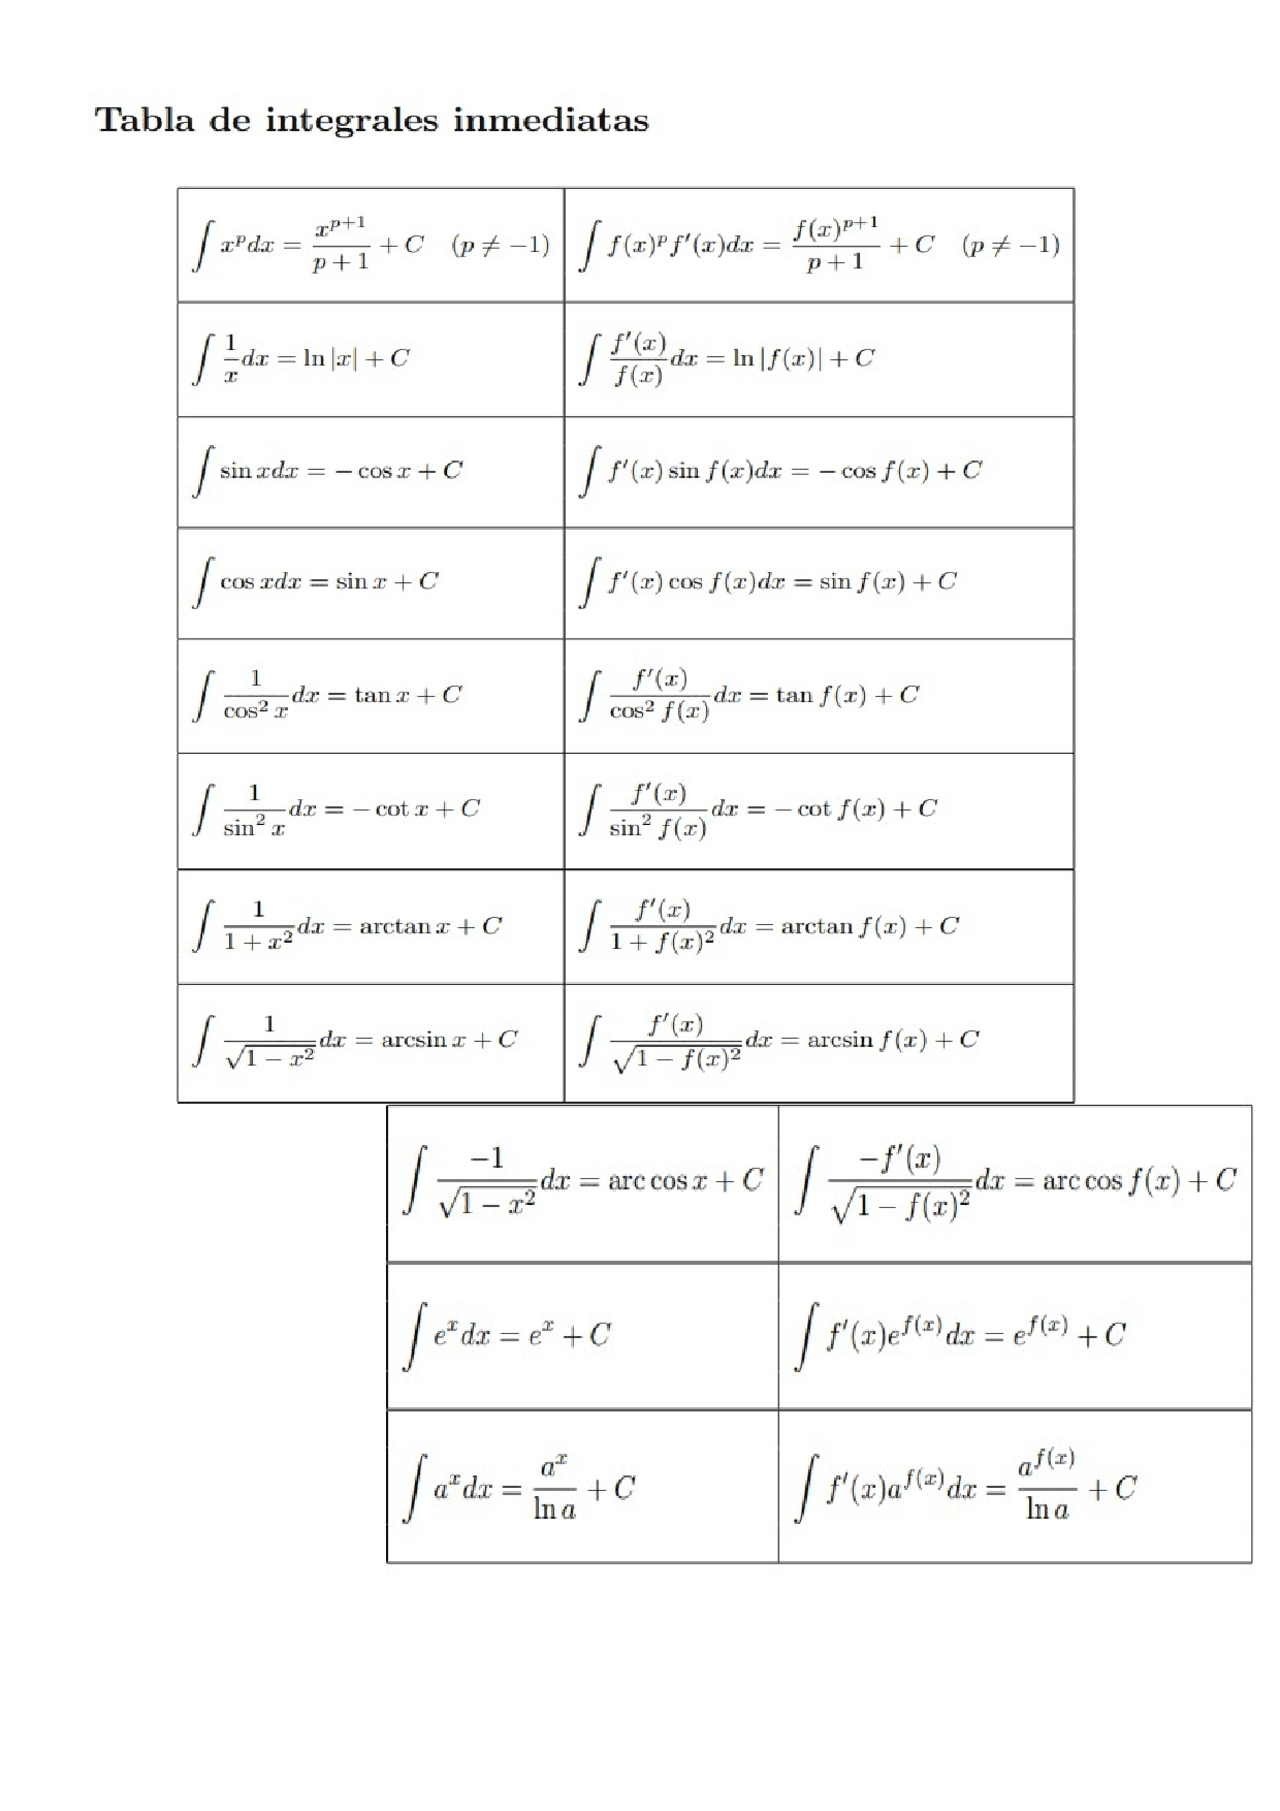 Tabla de integrales inmediatas
∫ x^p dx = x^{p+1}/(p+1) + C (p ≠ −1) ∫ f(x)^p f′(x)dx = f(x)^{p+1}/(p+1) + C (p ≠ −1)
∫ 1/x dx = ln |x| + C ∫ f′(x)/f(x) dx = ln |f(x)| + C
∫ sin xdx = − cos x + C ∫ f′(x) sin f(x)dx = − cos f(x) + C
∫ cos xdx = sin x + C ∫ f′(x) cos f(x)dx = sin f(x) + C
∫ 1/cos² x dx = tan x + C ∫ f′(x)/cos² f(x) dx = tan f(x) + C
∫ 1/sin² x dx = − cot x + C ∫ f′(x)/sin² f(x) dx = − cot f(x) + C
∫ 1/(1 + x²) dx = arctan x + C ∫ f′(x)/(1 + f(x)²) dx = arctan f(x) + C
∫ 1/√(1 − x²) dx = arcsin x + C ∫ f′(x)/√(1 − f(x)²) dx = arcsin f(x) + C
∫ −1/√(1 − x²) dx = arc cos x + C ∫ −f′(x)/√(1 − f(x)²) dx = arc cos f(x) + C
∫ e^x dx = e^x + C ∫ f′(x)e^{f(x)} dx = e^{f(x)} + C
∫ a^x dx = a^x/ln a + C ∫ f′(x)a^{f(x)} dx = a^{f(x)}/ln a + C